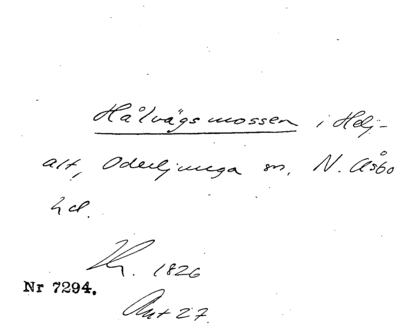 Hålvägsmossen i Hälj-
alt, Oderljunga sn, N. Åsbo
hd.
Kr. 1826
Nr 7294.
Ant 27.